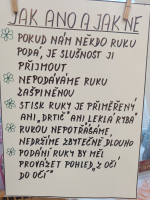 JAK ANO A JAK NE
POKUD NÁM NĚKDO RUKU
PODÁ, JE SLUŠNOST JI
PŘIJMOUT
NEPODÁVÁME RUKU
ZAŠPINĚNOU
STISK RUKY JE PŘIMĚŘENÝ
ANI „DRTIČ" ANI „LEKLÁ RYBA"
RUKOU NEPOTŘÁSÁME,
NEDRŽÍME ZBYTEČNĚ DLOUHO
PODÁNÍ RUKY BY MĚL
PROVÁZET POHLED „Z OČÍ
DO OČÍ"